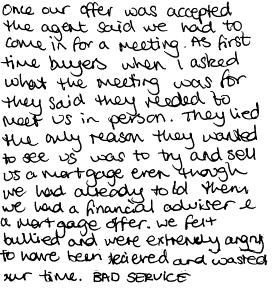 Once our offer was accepted
the agent said we had to
come in for a meeting. As first
time buyers when I asked
what the meeting was for
they said they needed to
meet us in person. They lied
the only reason they wanted
to see us was to try and sell
us a mortgage even though
we had already told them
we had a financial adviser &
a mortgage offer. We felt
bullied and were extremely angry
to have been and wasted
our time. BAD SERVICE